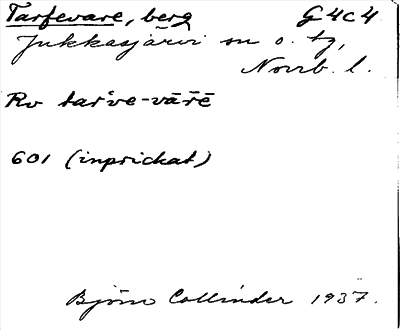 Tarfevare, berg G4c4
Jukkasjärvi sn o. tg,
Norrb. l.
Rv tarve-vārē
601 (inprickat)
Björn Collinder 1937.